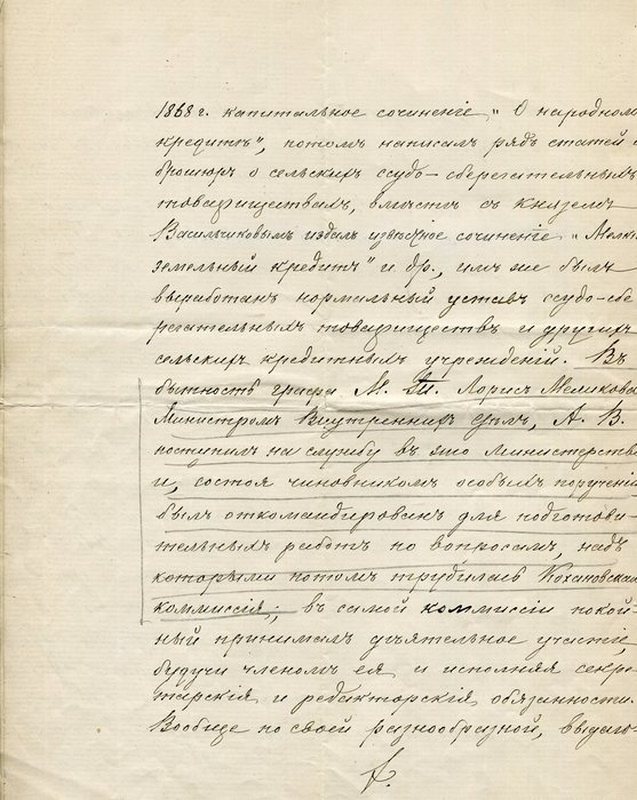 1868 г. капитальное сочиненіе „О народном
кредитѣ", потомъ написалъ рядъ статей
брошюръ о сельскихъ ссудо-сберегательныхъ
товариществахъ, вмѣстѣ съ княземъ
Васильчиковымъ издалъ извѣстное сочиненіе „Мелк
земельный кредитъ" и др., имъ же былъ
выработанъ нормальный уставъ ссудо-сбе
регательныхъ товариществъ и другихъ
сельскихъ кредитныхъ учрежденій. Въ
бытность графа М. Т. Лорисъ Меликова
Министромъ Внутреннихъ дѣлъ, А. В.
поступилъ на службу въ это министерство
и, состоя чиновникомъ особыхъ порученій
былъ откомандированъ для подготови-
тельныхъ работъ по вопросамъ, надъ
которыми потомъ трудилась Кохановская
коммиссія; въ самой коммиссіи покой-
ный принималъ дѣятельное участіе,
будучи членомъ ея и исполняя секре
тарскія и редакторскія обязанности.
Вообще по своей разнообразной, выдаю-